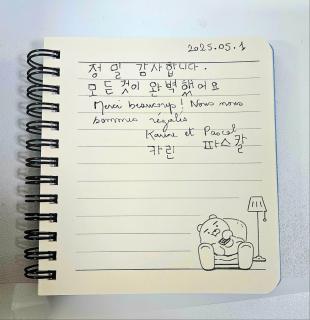 2025.05.1
정밀 감사합니다.
모든것이 완벽했어요
Merci beaucoup! Nous nous
sommes régalés
Karine et Pascal
카린 파스칼